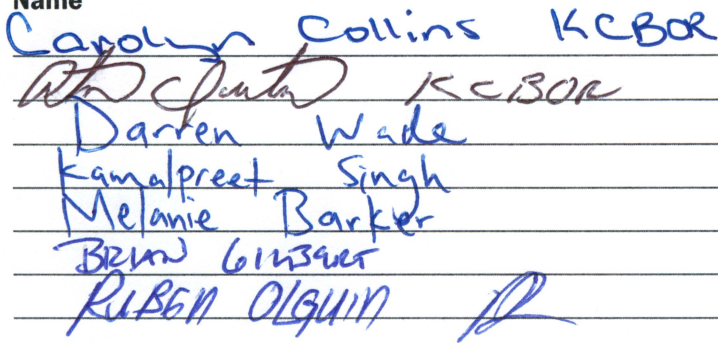 Name
Carolyn Collins KCBOR
KCBOR
Darren Wade
Kamalpreet Singh
Melanie Barker
BRIAN GILBERT
RUBEN OLGUIN